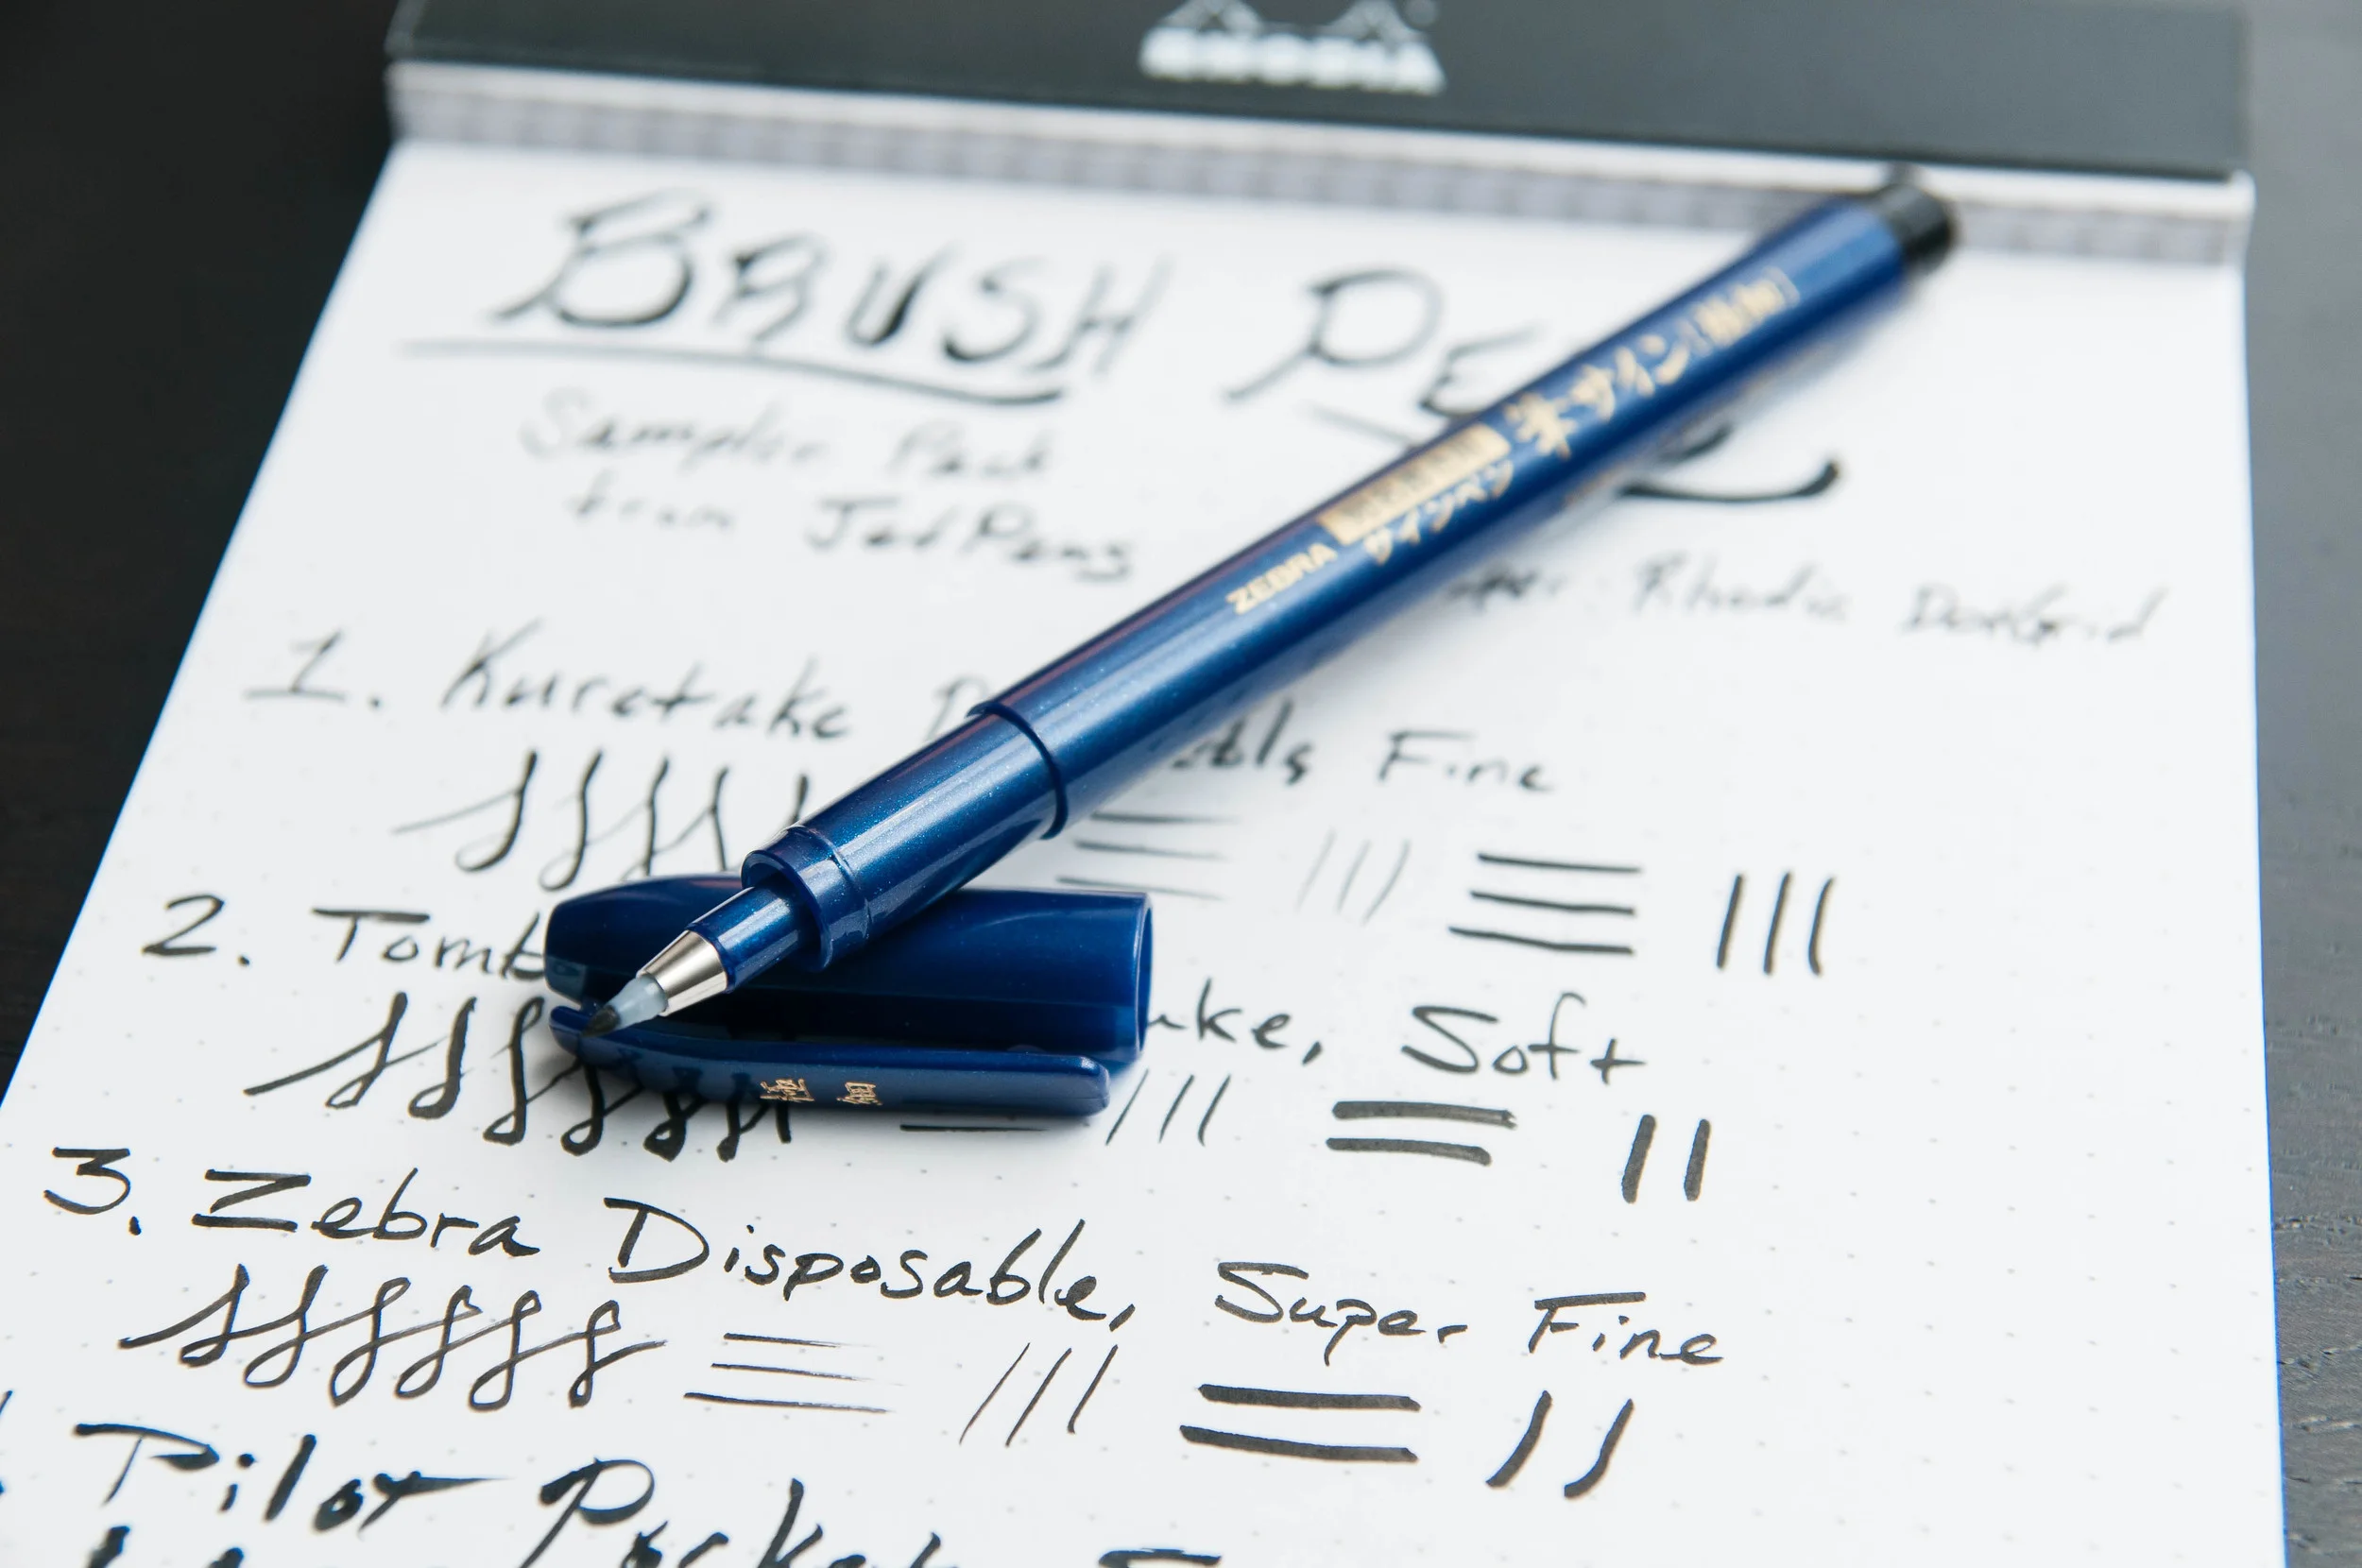 RHODIA
BRUSH PE
Sampler Pack
from JetPens
Rhodia DotGrid
ZEBRA
サインペン
筆サイン[極細]
1. Kuretake D able Fine
2. Tomb uke, Soft
極細
3. Zebra Disposable, Super Fine
Pilot Pocket